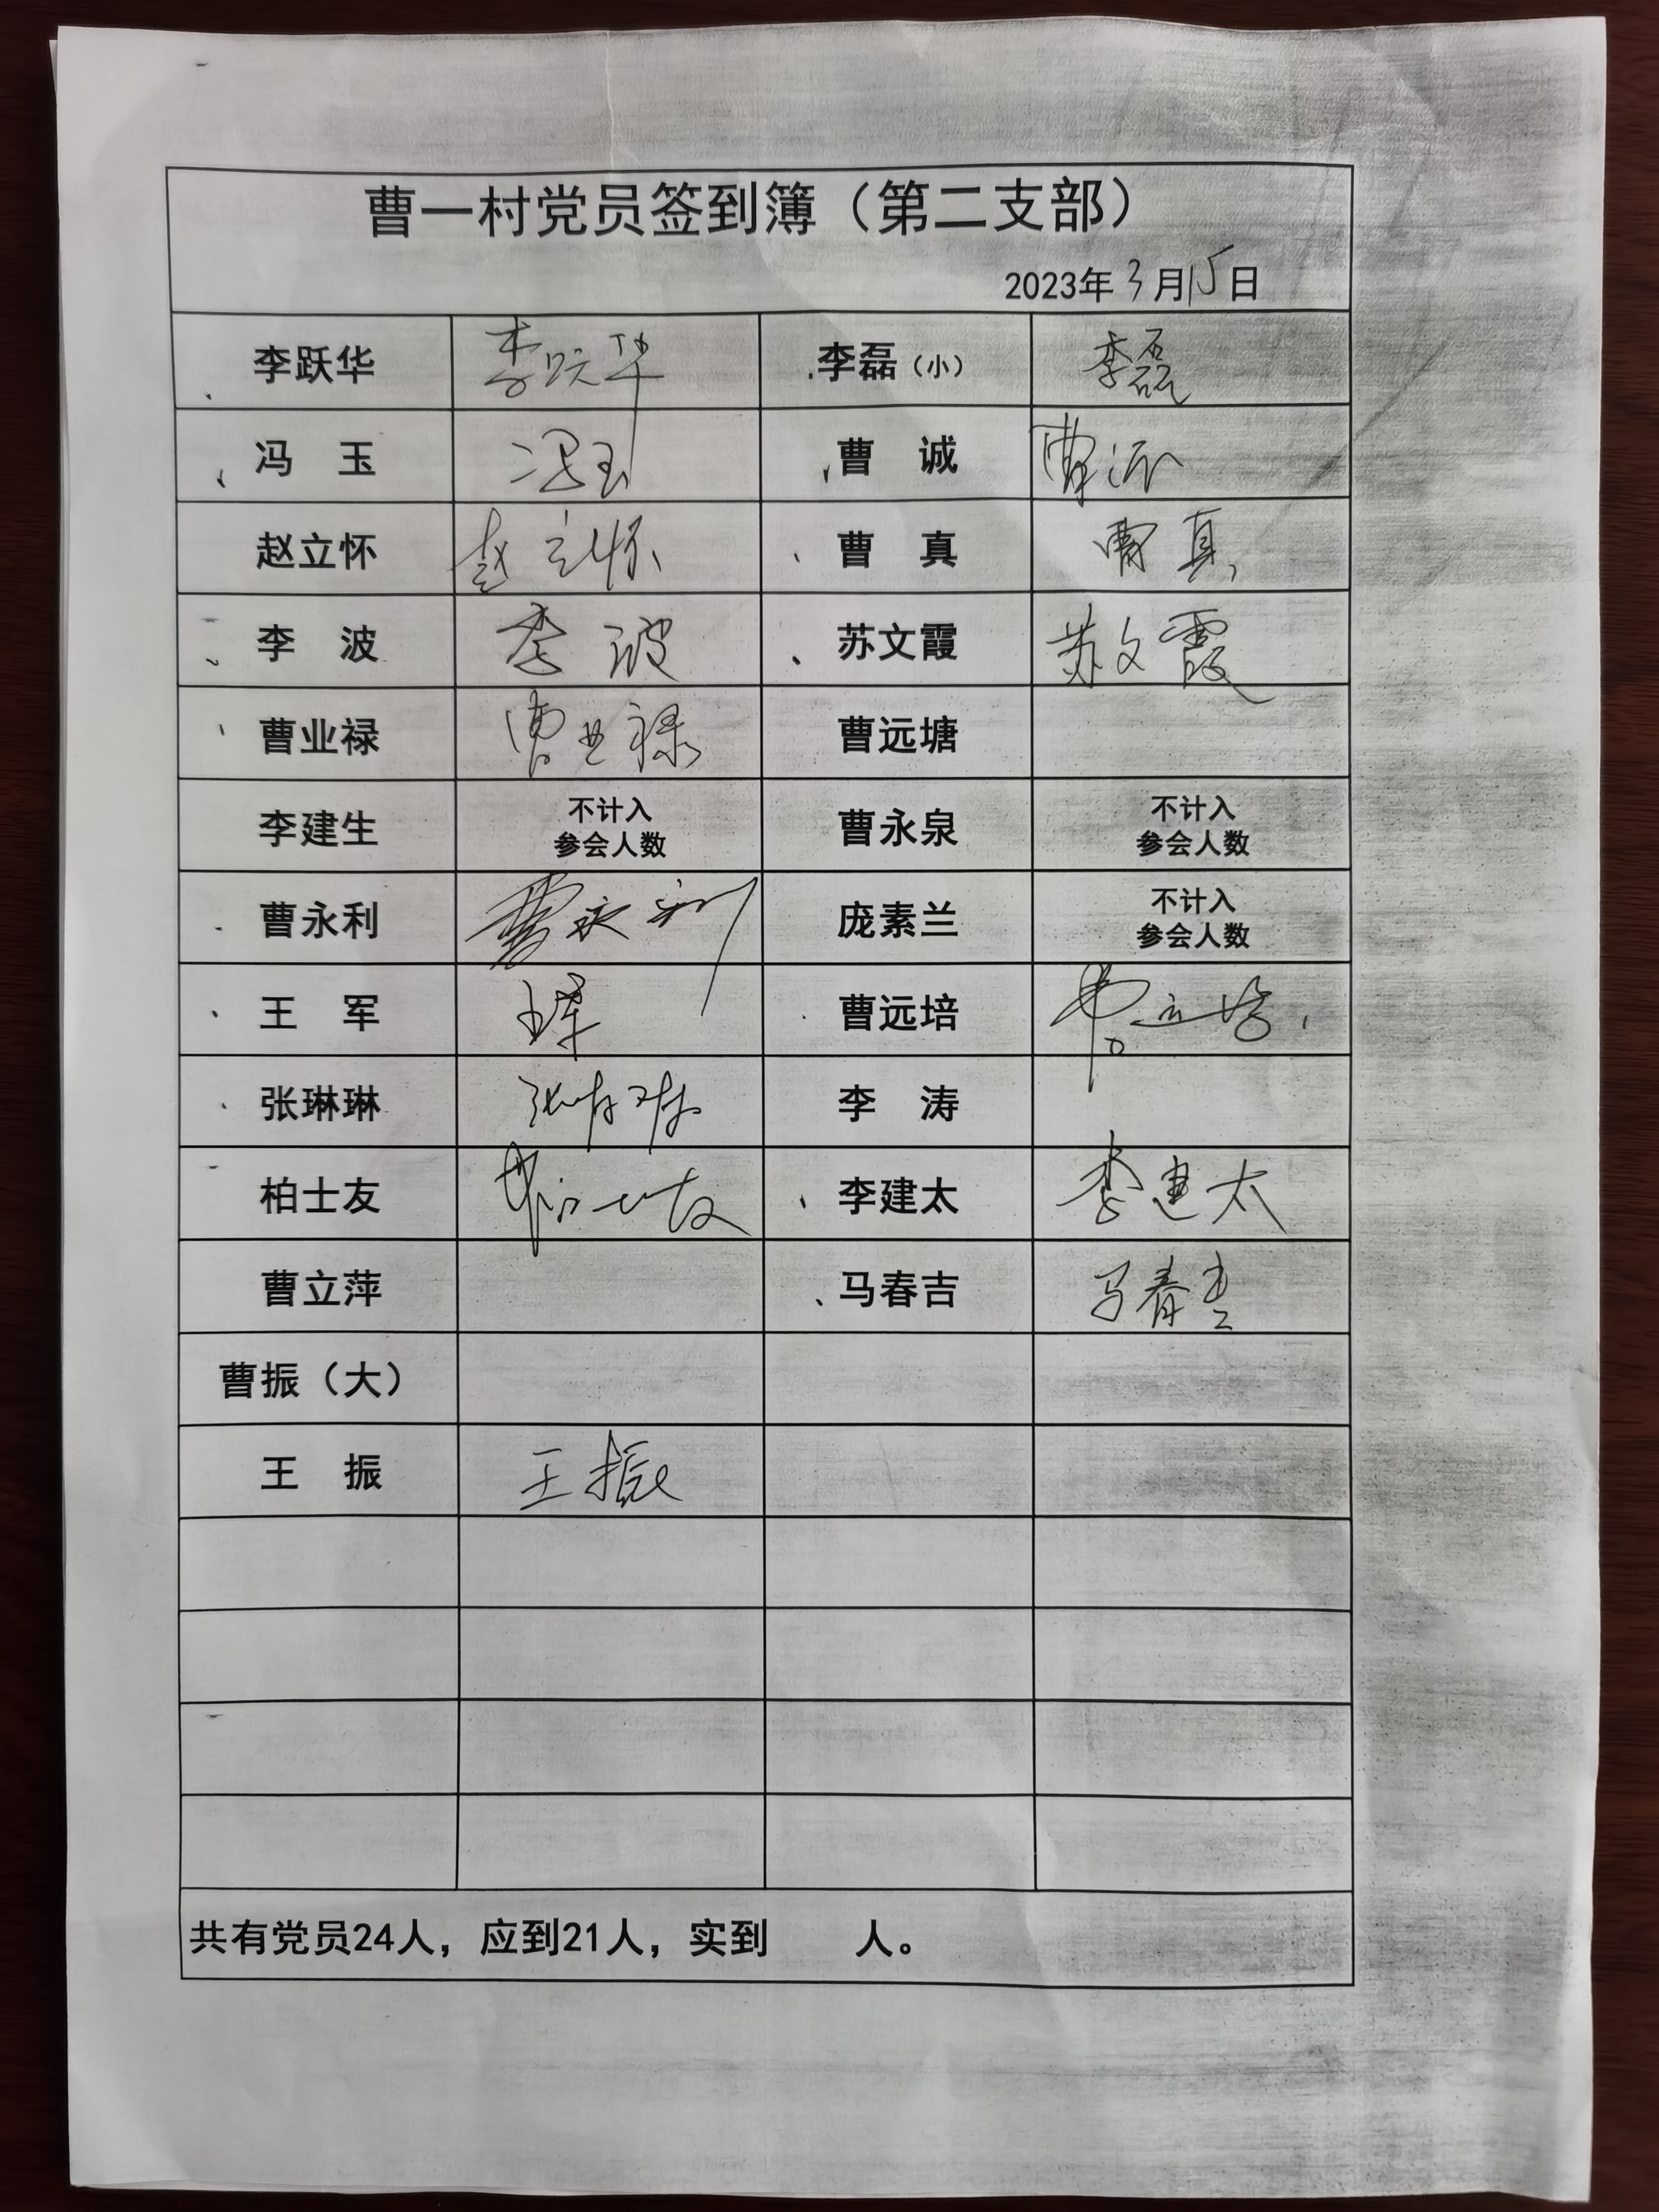 曹一村党员签到簿（第二支部）
2023年3月15日
李跃华 李跃华 李磊（小） 李磊
冯 玉 冯玉 曹 诚 曹诚
赵立怀 赵立怀 曹 真 曹真
李 波 李波 苏文霞 苏文霞
曹业禄 曹业禄 曹远塘
李建生 不计入 曹永泉 不计入
参会人数 参会人数
曹永利 曹永利 庞素兰 不计入
参会人数
王 军 王军 曹远培 曹远培
张琳琳 张琳琳 李 涛
柏士友 柏士友 李建太 李建太
曹立萍 马春吉 马春吉
曹振（大）
王 振 王振
共有党员24人，应到21人，实到 人。